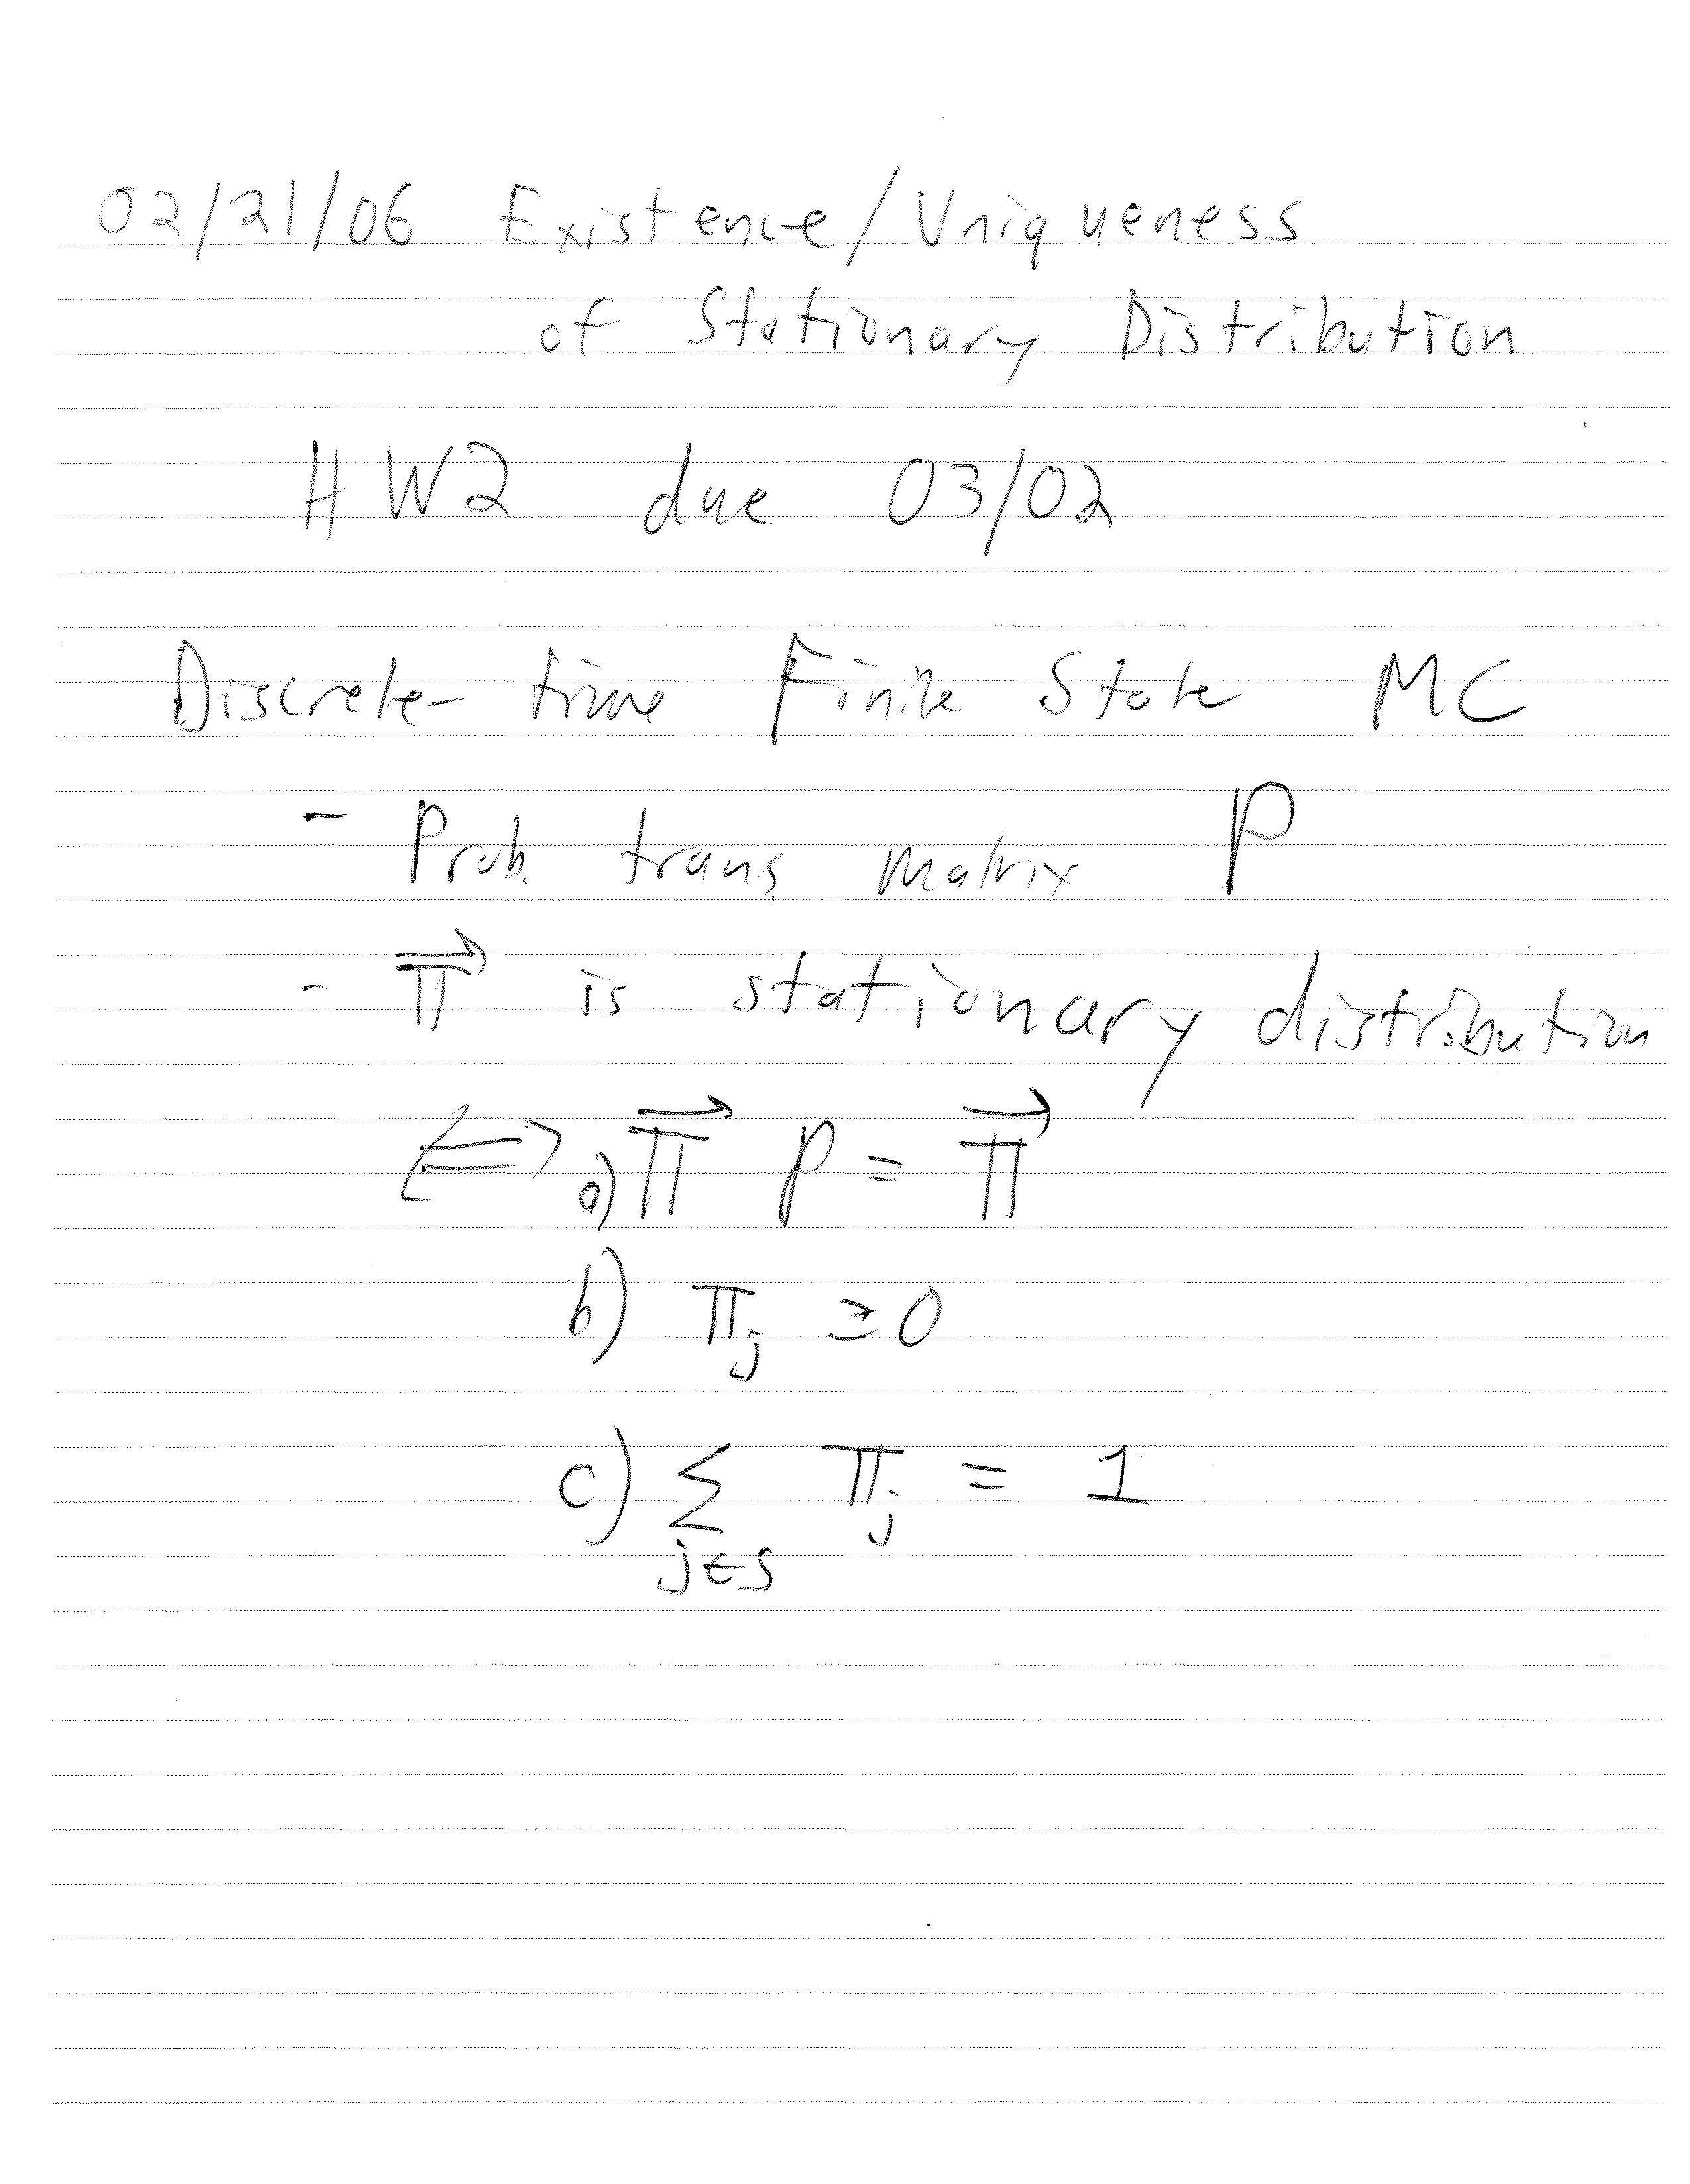 02/21/06 Existence/Uniqueness
of Stationary Distribution
HW2 due 03/02
Discrete-time Finite State MC
- Prob. trans. matrix P
- π⃗ is stationary distribution
⟺ a) π⃗ P = π⃗
b) π_j ≥ 0
c) Σ_{j∈S} π_j = 1